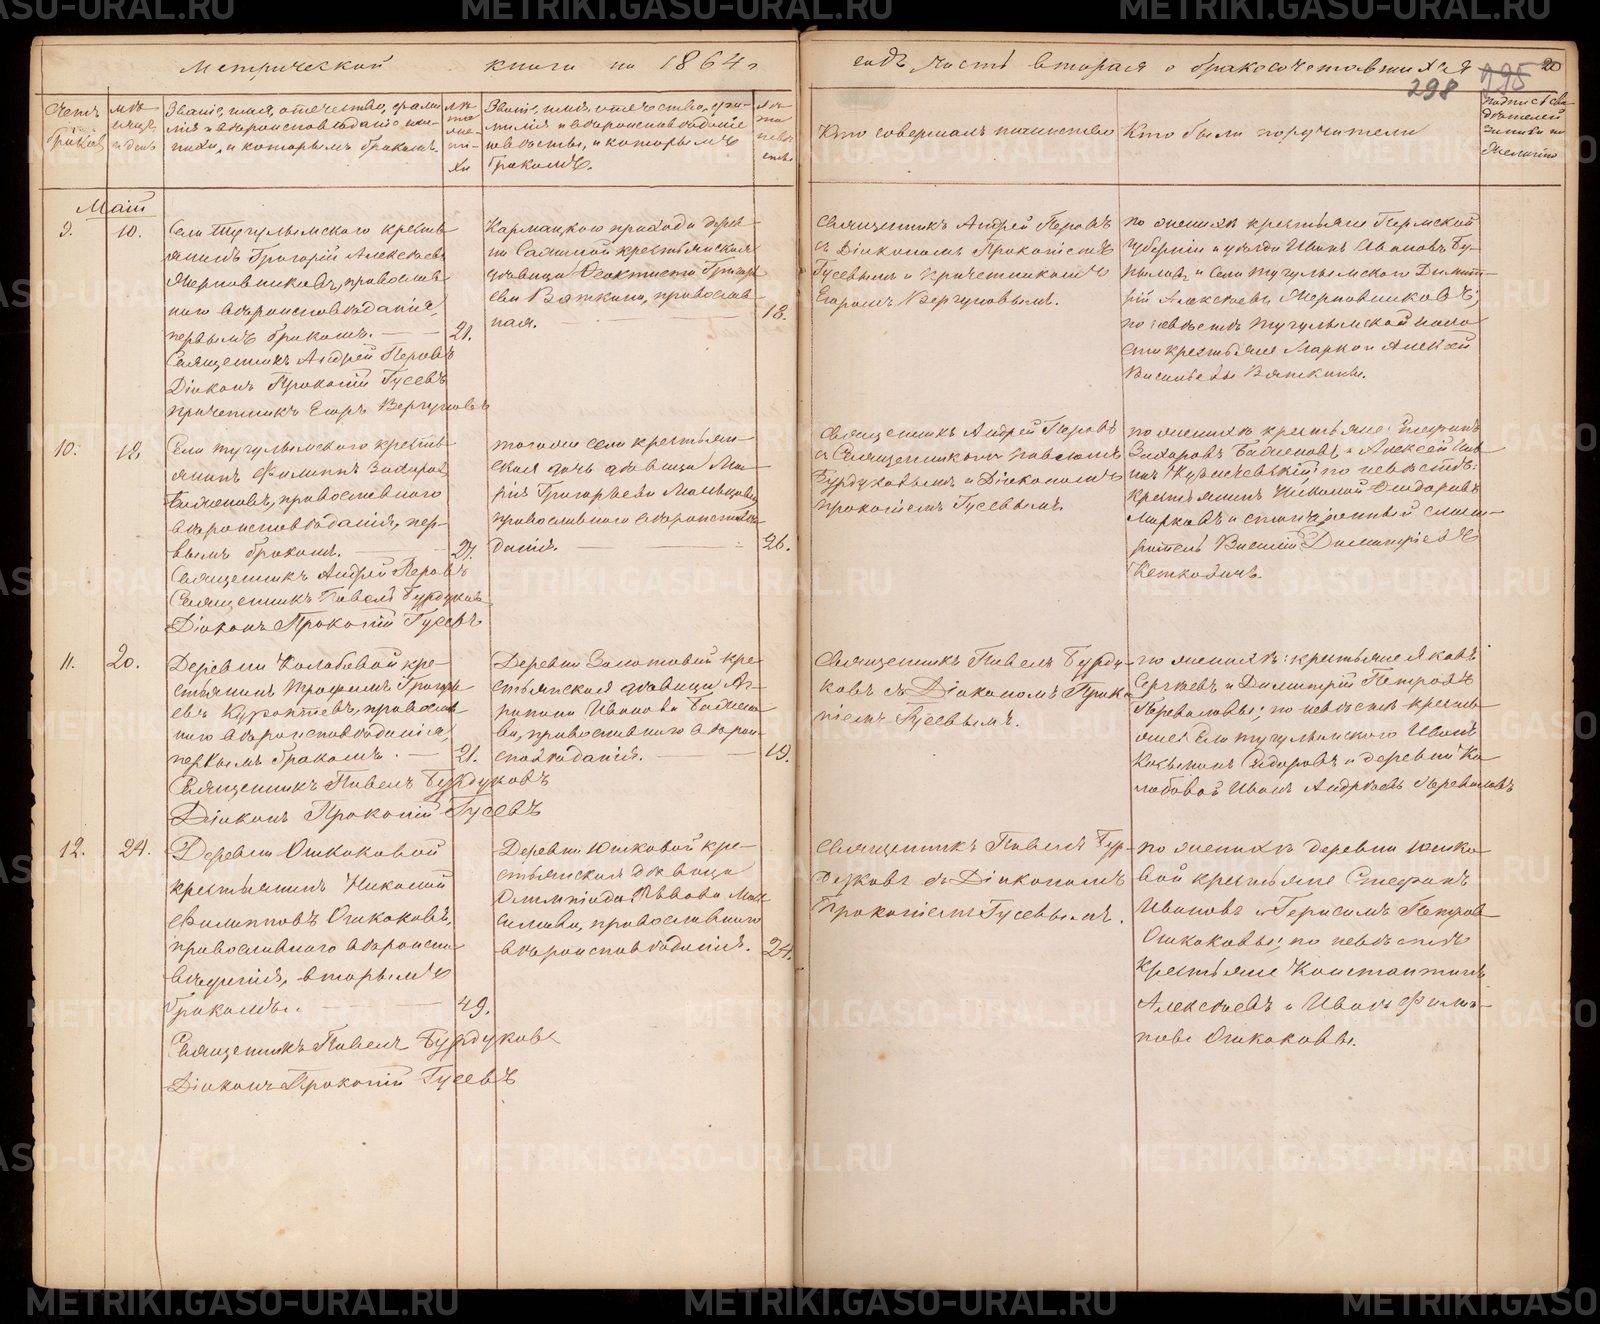 Метрической книги на 1864й
годъ часть вторая о бракосочетавшихся
298
295
20
Счетъ
браковъ
Мѣ-
сяцъ
и день
Званіе, имя, отчество, фами-
лія и вѣроисповѣданіе же-
ниха, и которымъ бракомъ.
Лѣ-
та
же-
ни-
ха
Званіе, имя, отчество, фа-
милія и вѣроисповѣданіе
невѣсты, и которымъ
бракомъ.
Лѣ-
та
невѣ-
сты
Кто совершалъ таинство
Кто были поручители
Подпись сви-
дѣтелей
записи по
желанію
Май
9.
10.
Села Тугулымскаго кресть-
янинъ Григорій Алексѣевъ
Мерновниковъ, православ-
наго вѣроисповѣданія,
первымъ бракомъ.
21.
Священникъ Андрей Перовъ
Діаконъ Прокопій Гусевъ
Причетникъ Егоръ Вергуновъ
Кармацкаго прихода дерев-
ни крестьянская
дѣвица Ѳеоктиста Григорь-
ева Вяткина, православ-
ная.
18.
Священникъ Андрей Перовъ
съ Діакономъ Прокопіемъ
Гусевымъ и Причетникомъ
Егоромъ Вергуновымъ.
По женихѣ крестьяне Пермской
губерніи и уѣзда Иванъ Ивановъ Бу-
рыловъ, и Села Тугулымскаго Димит-
рій Алексѣевъ Мерновниковъ;
по невѣстѣ Тугулымской воло-
сти крестьяне Марко и Алексѣй
Васильевы Вяткины.
10.
12.
Села Тугулымскаго кресть-
янинъ Филиппъ Захаровъ
Баженовъ, православнаго
вѣроисповѣданія, пер-
вымъ бракомъ.
27.
Священникъ Андрей Перовъ
Священникъ Павелъ Бурдуковъ
Діаконъ Прокопій Гусевъ
тогоже села крестьян-
ская дочь дѣвица Ма-
рія Григорьева Мальцова,
православнаго вѣроисповѣ-
данія.
26.
Священникъ Андрей Перовъ
съ Священникомъ Павломъ
Бурдуковымъ и Діакономъ
Прокопіемъ Гусевымъ.
по женихѣ крестьяне: Стефанъ
Захаровъ Баженовъ, и Алексѣй
по невѣстѣ:
крестьянинъ Николай Ѳедоровъ
Марковъ и станціонный смот-
ритель Василій Димитріевъ
11.
20.
Деревни Колобовой кре-
стьянинъ Трофимъ Григорь-
евъ православ-
наго вѣроисповѣданія,
первымъ бракомъ.
21.
Священникъ Павелъ Бурдуковъ
Діаконъ Прокопій Гусевъ
Деревни Золотовой кре-
стьянская дѣвица Аг-
рипина Иванова Бажено-
ва, православнаго вѣрои-
сповѣданія.
19.
Священникъ Павелъ Бурду-
ковъ съ Діакономъ Проко-
піемъ Гусевымъ.
по женихѣ: крестьяне Яковъ
Сергѣевъ и Димитрій Петровъ
Переваловы; по невѣстѣ кресть-
яне: Села Тугулымскаго Иванъ
Козьминъ Сидоровъ и деревни Ко-
лобовой Иванъ Андреевъ Переваловъ
12.
24.
Деревни Ошкоковой
крестьянинъ Николай
Филипповъ Ошкоковъ,
православнаго вѣроиспо-
вѣданія, вторымъ
бракомъ.
49.
Священникъ Павелъ Бурдуковъ
Діаконъ Прокопій Гусевъ
Деревни Юшковой кре-
стьянская дѣвица
Олимпіада Львова Мак-
симова, православнаго
вѣроисповѣданія.
24.
Священникъ Павелъ Бур-
дуковъ съ Діакономъ
Прокопіемъ Гусевымъ.
по женихѣ деревни Юшко-
вой крестьяне Стефанъ
Ивановъ и Герасимъ Петровъ
Ошкоковы; по невѣстѣ
крестьяне Константинъ
Алексѣевъ и Иванъ Филип-
повъ Ошкоковы.
METRIKI.GASO-URAL.RU